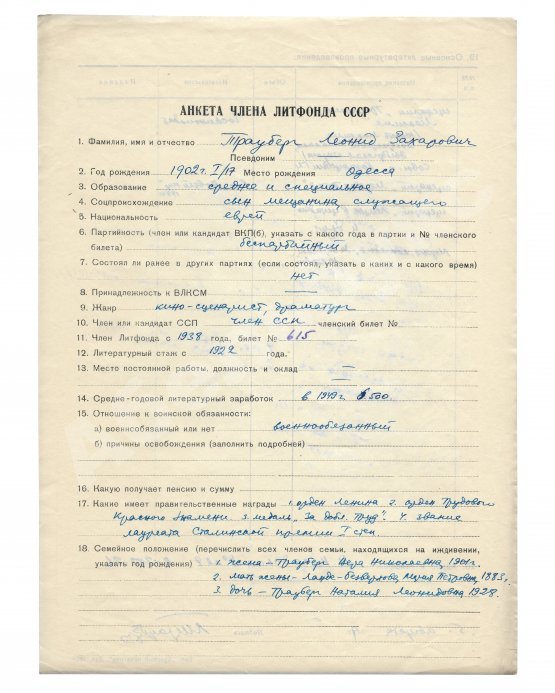 АНКЕТА ЧЛЕНА ЛИТФОНДА СССР
1. Фамилия, имя и отчество Трауберг Леонид Захарович
Псевдоним —
2. Год рождения 1902 г. I/17 Место рождения Одесса
3. Образование среднее и специальное
4. Соцпроисхождение сын мещанина, служащего
5. Национальность еврей
6. Партийность (член или кандидат ВКП(б), указать с какого года в партии и № членского
билета) беспартийный
7. Состоял ли ранее в других партиях (если состоял, указать в каких и с какого время)
нет
8. Принадлежность к ВЛКСМ —
9. Жанр кино-сценарист, драматург
10. Член или кандидат ССП член ССП членский билет №
11. Член Литфонда с 1938 года, билет № 615
12. Литературный стаж с 1922 года.
13. Место постоянной работы, должность и оклад —
14. Средне-годовой литературный заработок в 1949 г. 6.500
15. Отношение к воинской обязанности:
а) военнообязанный или нет военнообязанный
б) причины освобождения (заполнить подробней)
16. Какую получает пенсию и сумму —
17. Какие имеет правительственные награды 1. орден Ленина 2. орден Трудового
Красного Знамени. 3. медаль „За добл. труд". 4. звание
лауреата Сталинской премии I степ.
18. Семейное положение (перечислить всех членов семьи, находящихся на иждивении,
указать год рождения) 1. жена – Трауберг Вера Николаевна, 1901 г.
2. мать жены – Мария Петровна, 1883 г.
3. дочь – Трауберг Наталия Леонидовна, 1928.